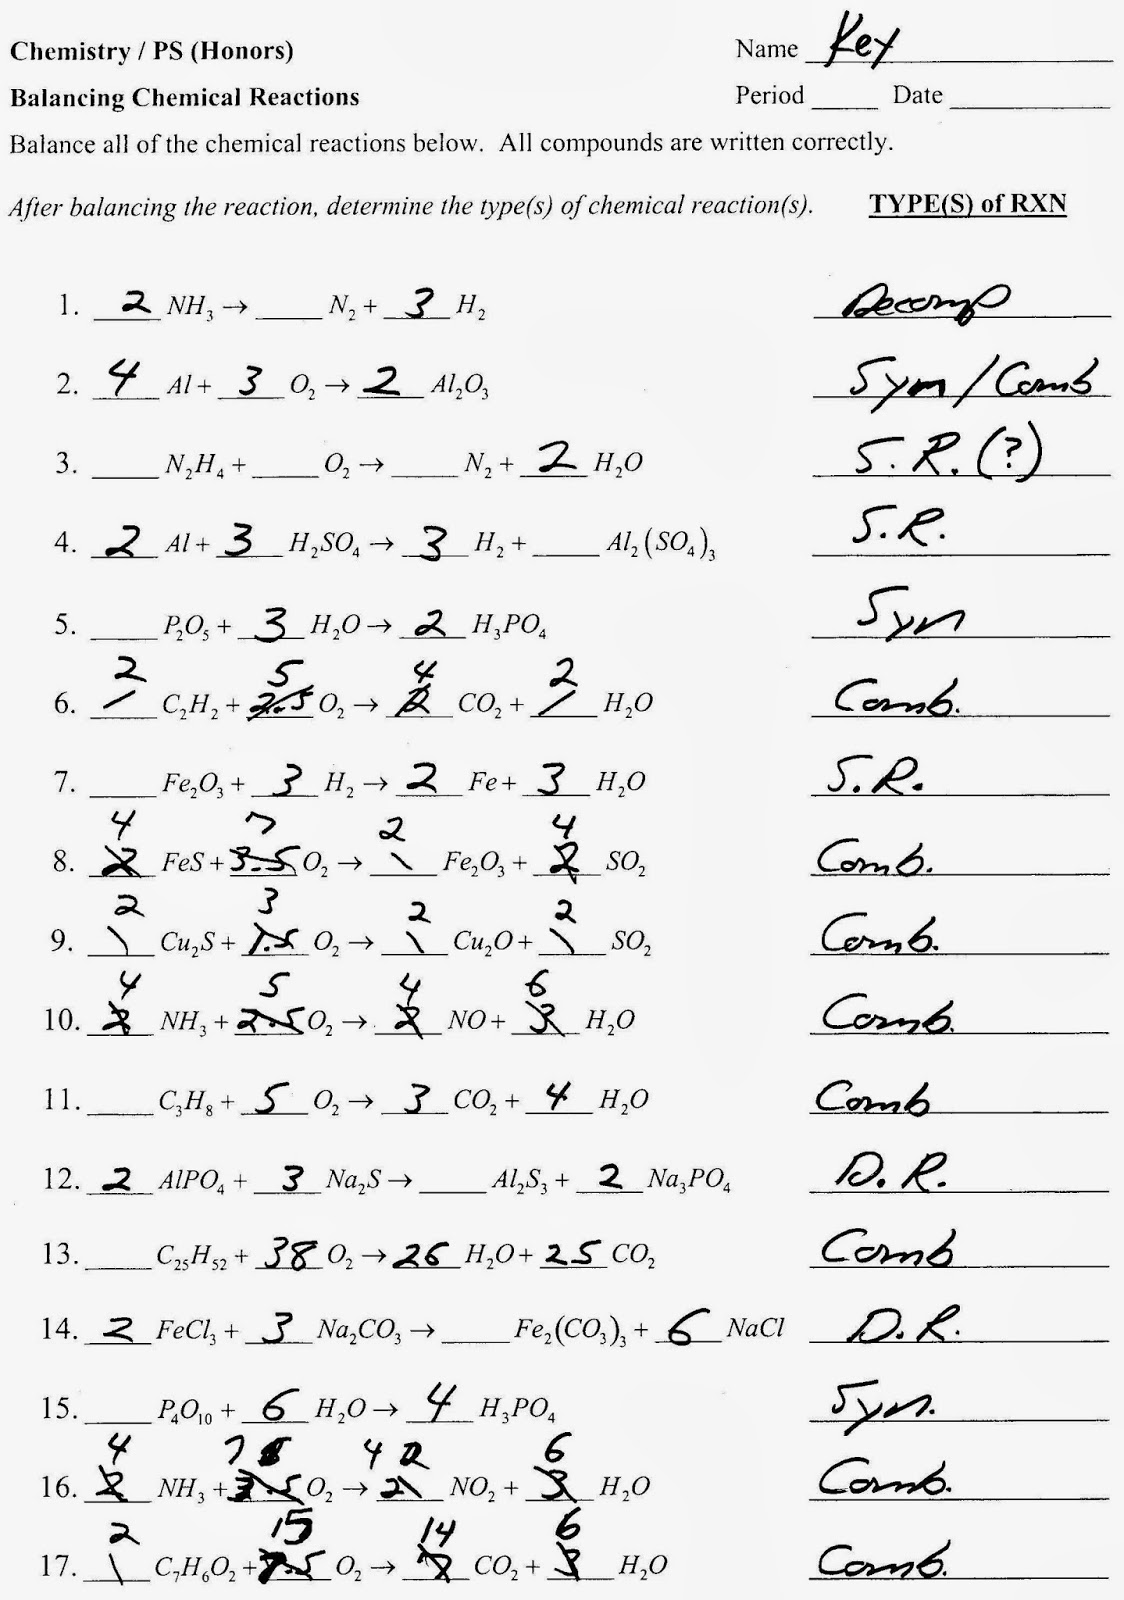 Chemistry / PS (Honors) Name Key
Balancing Chemical Reactions Period ____ Date ________
Balance all of the chemical reactions below. All compounds are written correctly.
After balancing the reaction, determine the type(s) of chemical reaction(s). TYPE(S) of RXN
1. 2 NH₃ → ____ N₂ + 3 H₂ Decomp
2. 4 Al + 3 O₂ → 2 Al₂O₃ Syn / Comb
3. ____ N₂H₄ + ____ O₂ → ____ N₂ + 2 H₂O S.R. (?)
4. 2 Al + 3 H₂SO₄ → 3 H₂ + ____ Al₂(SO₄)₃ S.R.
5. ____ P₂O₅ + 3 H₂O → 2 H₃PO₄ Syn
6. 2 C₂H₂ + 5 O₂ → 4 CO₂ + 2 H₂O Comb.
7. ____ Fe₂O₃ + 3 H₂ → 2 Fe + 3 H₂O S.R.
8. 4 FeS + 7 O₂ → 2 Fe₂O₃ + 4 SO₂ Comb.
9. 2 Cu₂S + 3 O₂ → 2 Cu₂O + 2 SO₂ Comb.
10. 4 NH₃ + 5 O₂ → 4 NO + 6 H₂O Comb.
11. ____ C₃H₈ + 5 O₂ → 3 CO₂ + 4 H₂O Comb
12. 2 AlPO₄ + 3 Na₂S → ____ Al₂S₃ + 2 Na₃PO₄ D.R.
13. ____ C₂₅H₅₂ + 38 O₂ → 26 H₂O + 25 CO₂ Comb
14. 2 FeCl₃ + 3 Na₂CO₃ → ____ Fe₂(CO₃)₃ + 6 NaCl D.R.
15. ____ P₄O₁₀ + 6 H₂O → 4 H₃PO₄ Syn.
16. 4 NH₃ + 7 O₂ → 4 NO₂ + 6 H₂O Comb.
17. 2 C₇H₆O₂ + 15 O₂ → 14 CO₂ + 6 H₂O Comb.